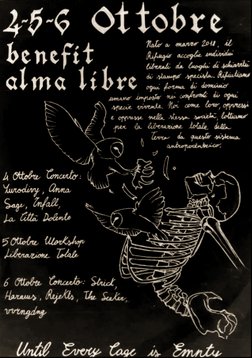 4-5-6 Ottobre
benefit
alma libre
Nato a marzo 2018, il
Rifugio accoglie individui
liberati da luoghi di schiavitù
di stampo specista. Rifiutiamo
ogni forma di dominio
umano imposto nei confronti di ogni
specie vivente. Noi come loro, oppressi
e oppresse nella stessa società, lottiamo
per la liberazione totale, della
terra da questo sistema
antropocentrico.
4 Ottobre Concerto:
Yurodivy, Anna
Sage, Infall,
La Città Dolente
5 Ottobre Workshop
Liberazione Totale
6 Ottobre Concerto: Struck,
Haraus, Rejekts, The Seeker,
vvengdng
Until Every Cage is Empty